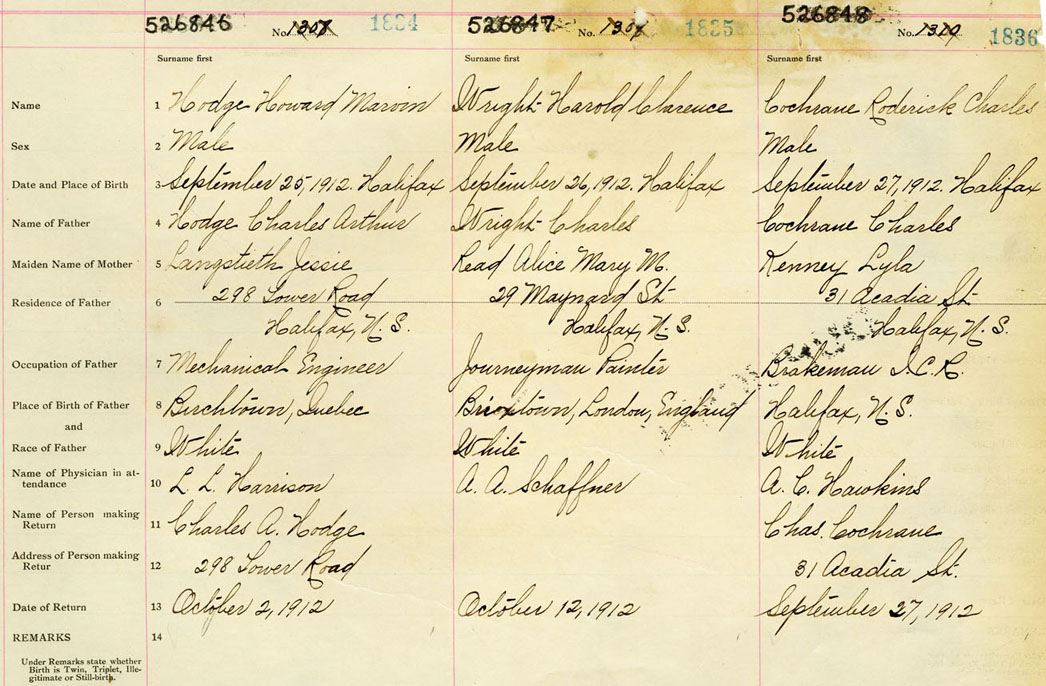 526846 No. 1307 1834 526847 No. 1308 1835 526848 No. 1310 1836
Surname first Surname first Surname first
Name 1 Hodge Howard Marvin Wright Harold Clarence Cochrane Roderick Charles
Sex 2 Male Male Male
Date and Place of Birth 3 September 25, 1912. Halifax September 26, 1912. Halifax September 27, 1912. Halifax
Name of Father 4 Hodge Charles Arthur Wright Charles Cochrane Charles
Maiden Name of Mother 5 Langstieth Jessie Read Alice Mary M. Kenney Lyla
Residence of Father 6 298 Lower Road 29 Maynard St 31 Acadia St
Halifax, N. S. Halifax, N. S. Halifax, N. S.
Occupation of Father 7 Mechanical Engineer Journeyman Painter Brakeman I.C.R.
Place of Birth of Father 8 Birchtown, Quebec London, England Halifax, N. S.
and
Race of Father 9 White White White
Name of Physician in at-
tendance 10 L. L. Harrison A. A. Schaffner A. C. Hawkins
Name of Person making
Return 11 Charles A. Hodge Chas. Cochrane
Address of Person making
Retur 12 298 Lower Road 31 Acadia St.
Date of Return 13 October 2, 1912 October 12, 1912 September 27, 1912
REMARKS 14
Under Remarks state whether
Birth is Twin, Triplet, Ille-
gitimate or Still-birth.